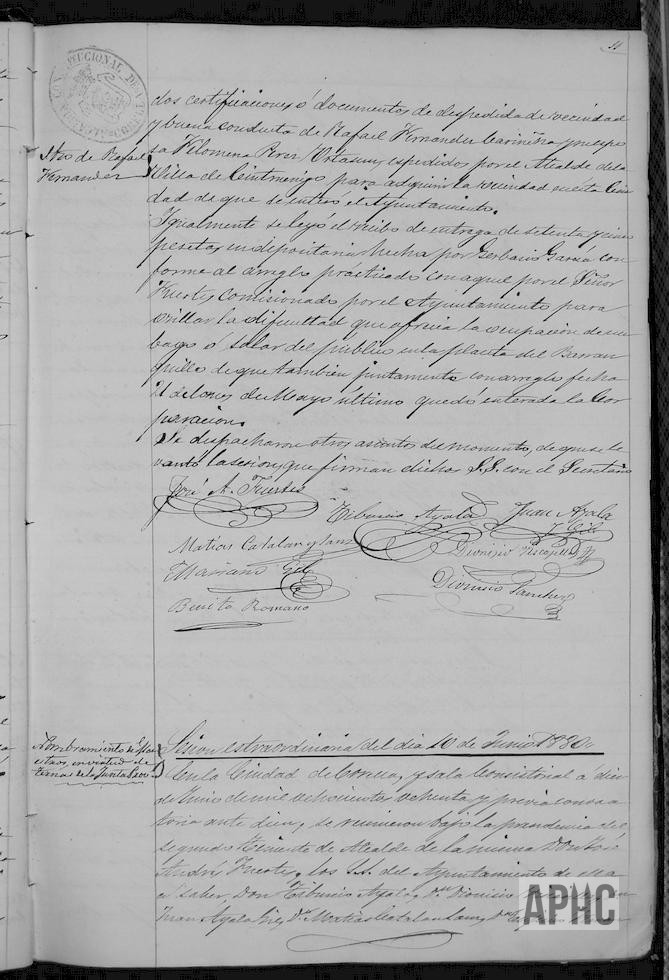 dos certificaciones ó documentos de despedida de vecindad
y buena conducta de Rafael Hernandez Cariñena y su espo
sa Filomena Perez Ortasun, espedidos por el Alcalde de la
Villa de Cintruenigo para adquirir la vecindad en esta Ciu
dad de que se enteró el Ayuntamiento.
Igualmente se leyó el recibo de entrega de setenta y cinco
pesetas en depositaria hecha por Gerbacio García con
forme al arreglo practicado con aquel por el Señor
Fuertes comisionado por el Ayuntamiento para
orillar la dificultad que ofrecia la ocupacion de un
bago ó solar del público en la placeta del Barran
quillo de que tambien juntamente con arreglo fecha
de Mayo último quedó enterada la Cor
poracion.
Se despacharon otros asuntos del momento, de que se le
vantó la sesion que firman dichos S.S. con el Secretario
Itro de Rafael
Hernandez
José A. Fuertes
Tiburcio Ayala
Juan Ayala
y Gil
Matias Catalan y Sanz
Dionisio
Mariano Gil
Dionisio Sanchez
Benito Romano
Nombramiento de
en virtud de
ternas de la Junta
Sesion estraordinaria del dia 10 de Junio 1880.
En la Ciudad de Corella, y sala Consistorial á diez
de Junio de mil ochocientos ochenta y previa convoca
toria ante diem, se reunieron bajo la presidencia del
segundo Teniente de Alcalde de la misma Don José
Andrés Fuertes, los S.S. del Ayuntamiento de ella
á saber, Don Tiburcio Ayala, Dn Dionisio
Juan Ayala Gil, Dn Matias Catalan Sanz, Dn
APHC